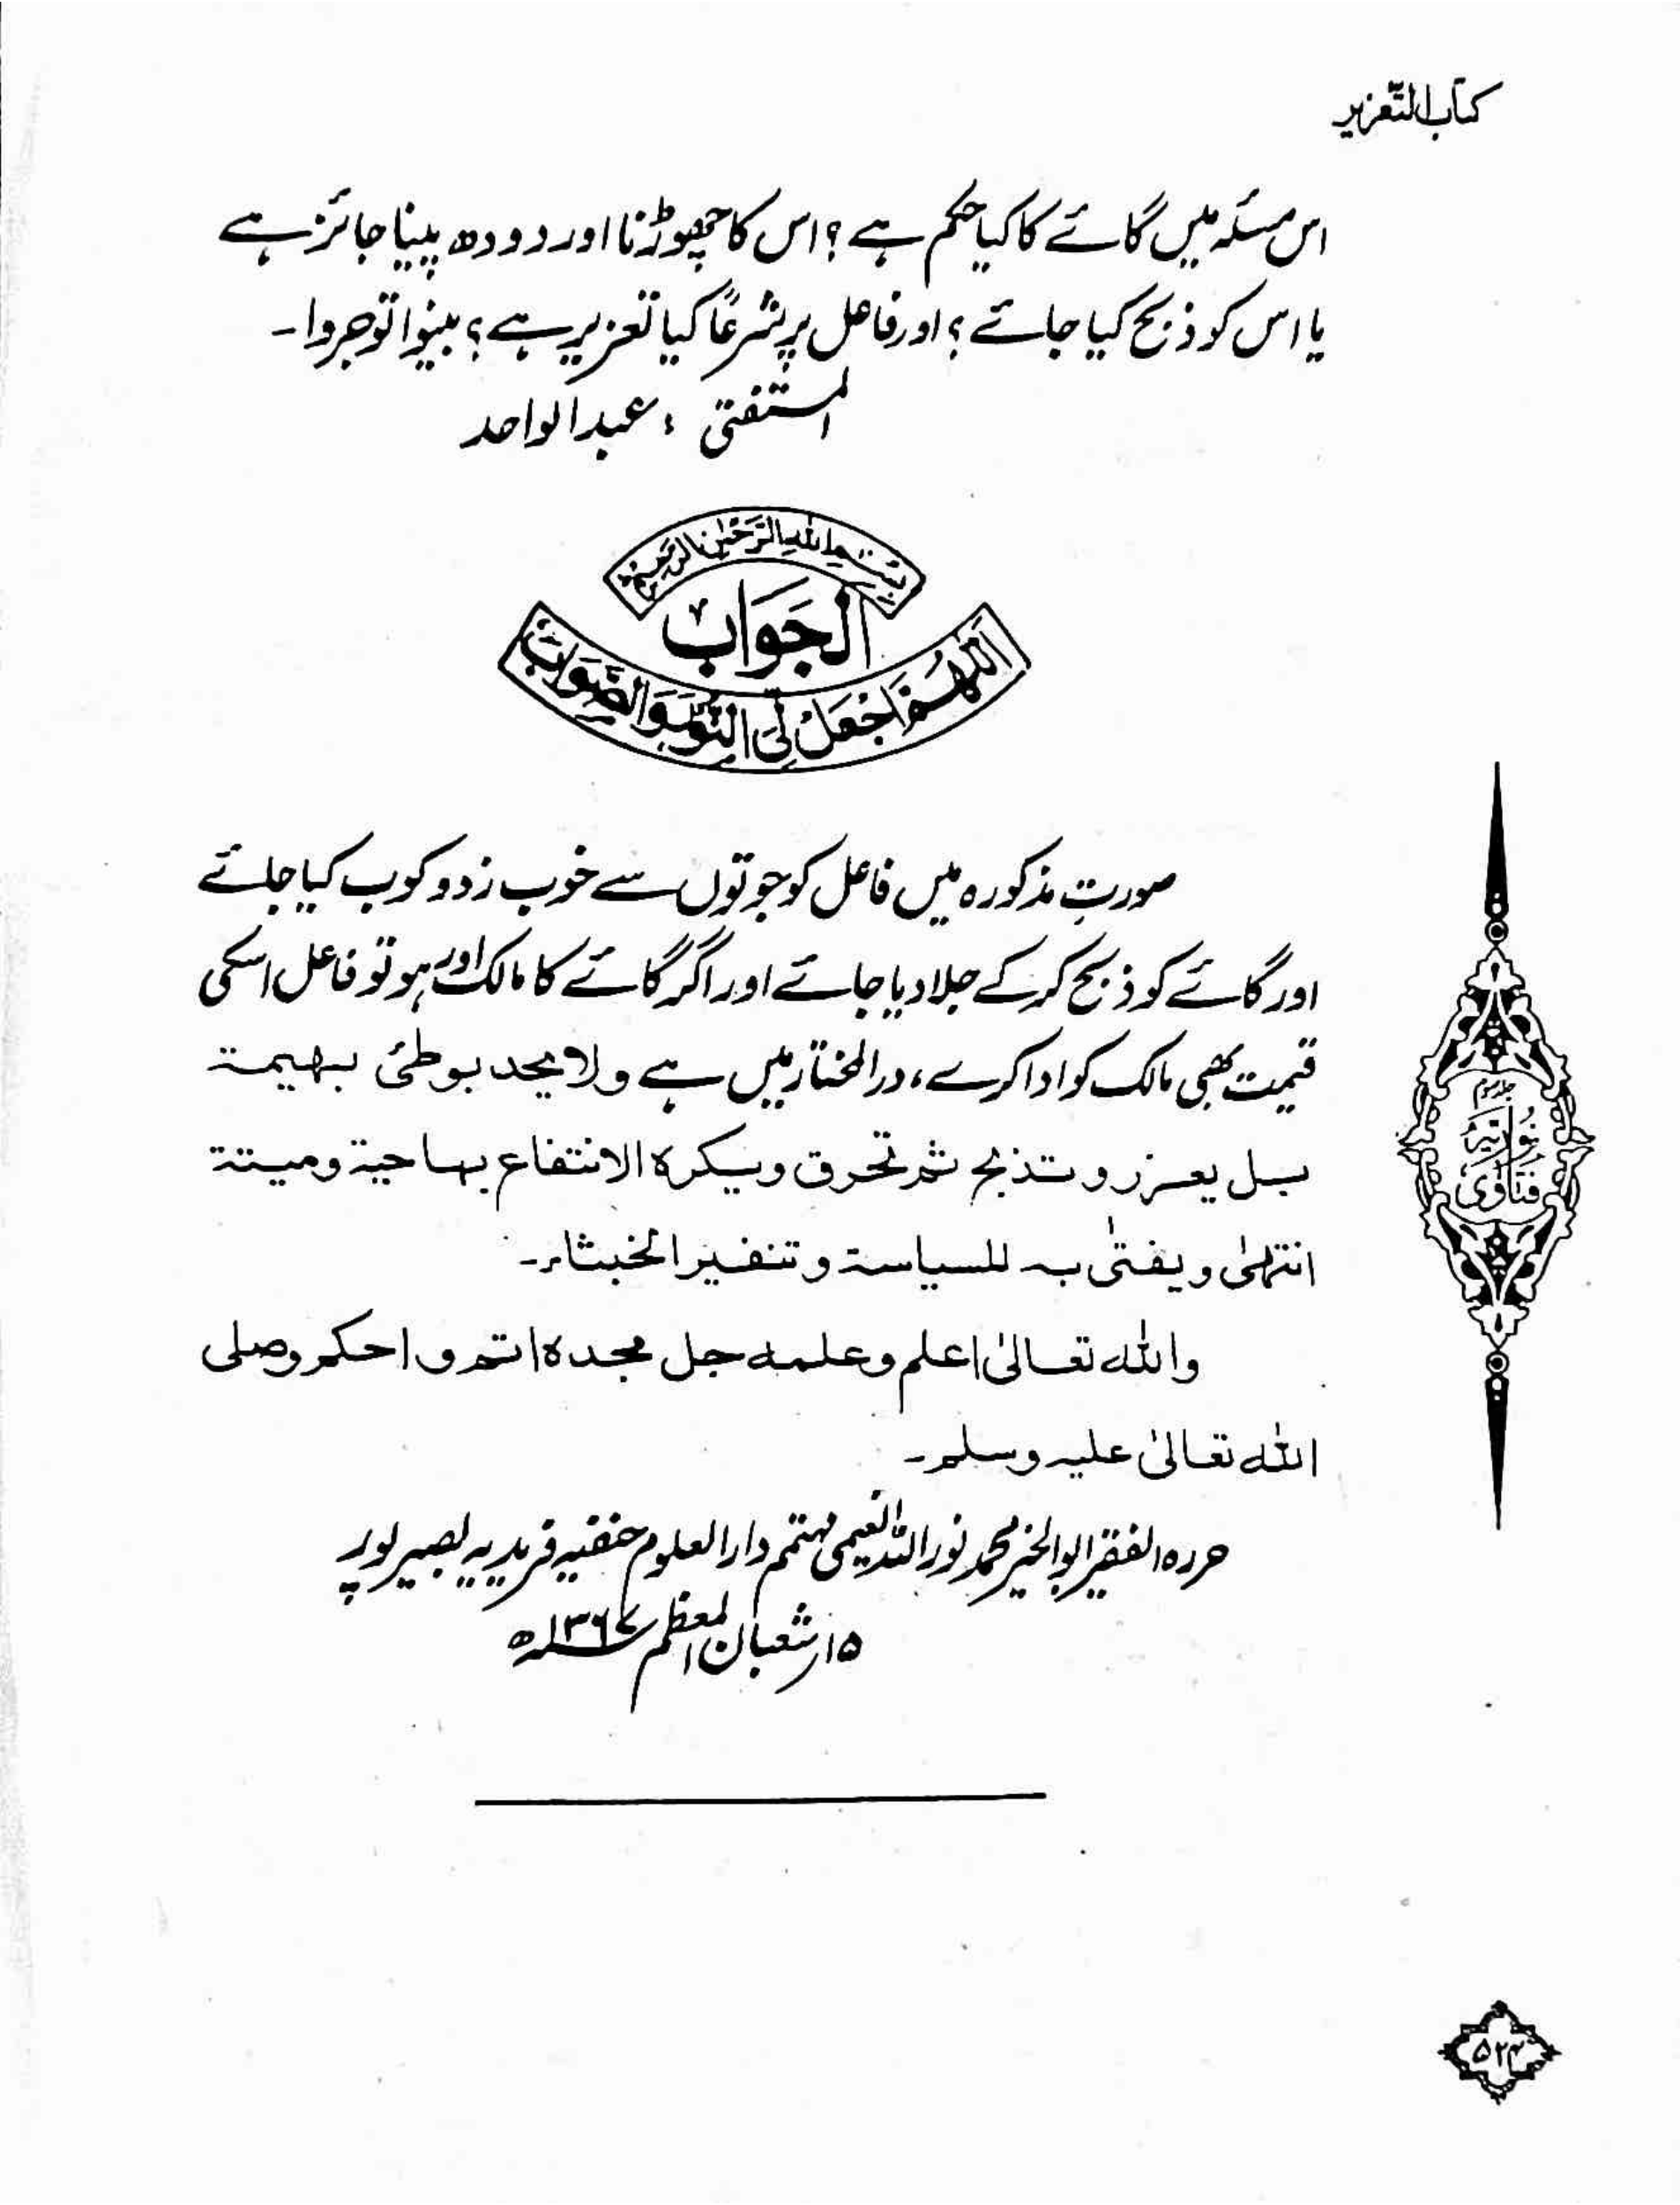 کتاب التعزیر
اس مسئلہ میں گائے کا کیا حکم ہے؟ اس کا چھوڑنا اور دودھ پینا جائز ہے
یا اس کو ذبح کیا جائے؟ اور فاعل پر شرعًا کیا تعزیر ہے؟ بینوا توجروا۔
المستفتی: عبدالواحد
بسم الله الرحمن الرحيم
الجواب
اللهم اجعل لی النور والصواب
صورتِ مذکورہ میں فاعل کو جوتوں سے خوب زد و کوب کیا جائے
اور گائے کو ذبح کر کے جلا دیا جائے اور اگر گائے کا مالک اور ہو تو فاعل اسکی
قیمت بھی مالک کو ادا کرے، درالمختار میں ہے ولا یحد بوطئ بهيمة
بل یعزر و تذبح ثم تحرق ویکره الانتفاع بها حية وميتة
انتهٰی و یفتٰی به للسیاسة و تنفیر الخبثاء۔
والله تعالیٰ اعلم و علمه جل مجده اتم و احکم وصلی
الله تعالیٰ علیہ وسلم۔
حررہ الفقیر ابوالخیر محمد نور اللہ النعیمی مہتمم دارالعلوم حنفیہ فریدیہ بصیر پور
۱۵ر شعبان المعظم ۱۳۶۷ھ
جلد سوم
فتاویٰ نوریہ
۵۲۳